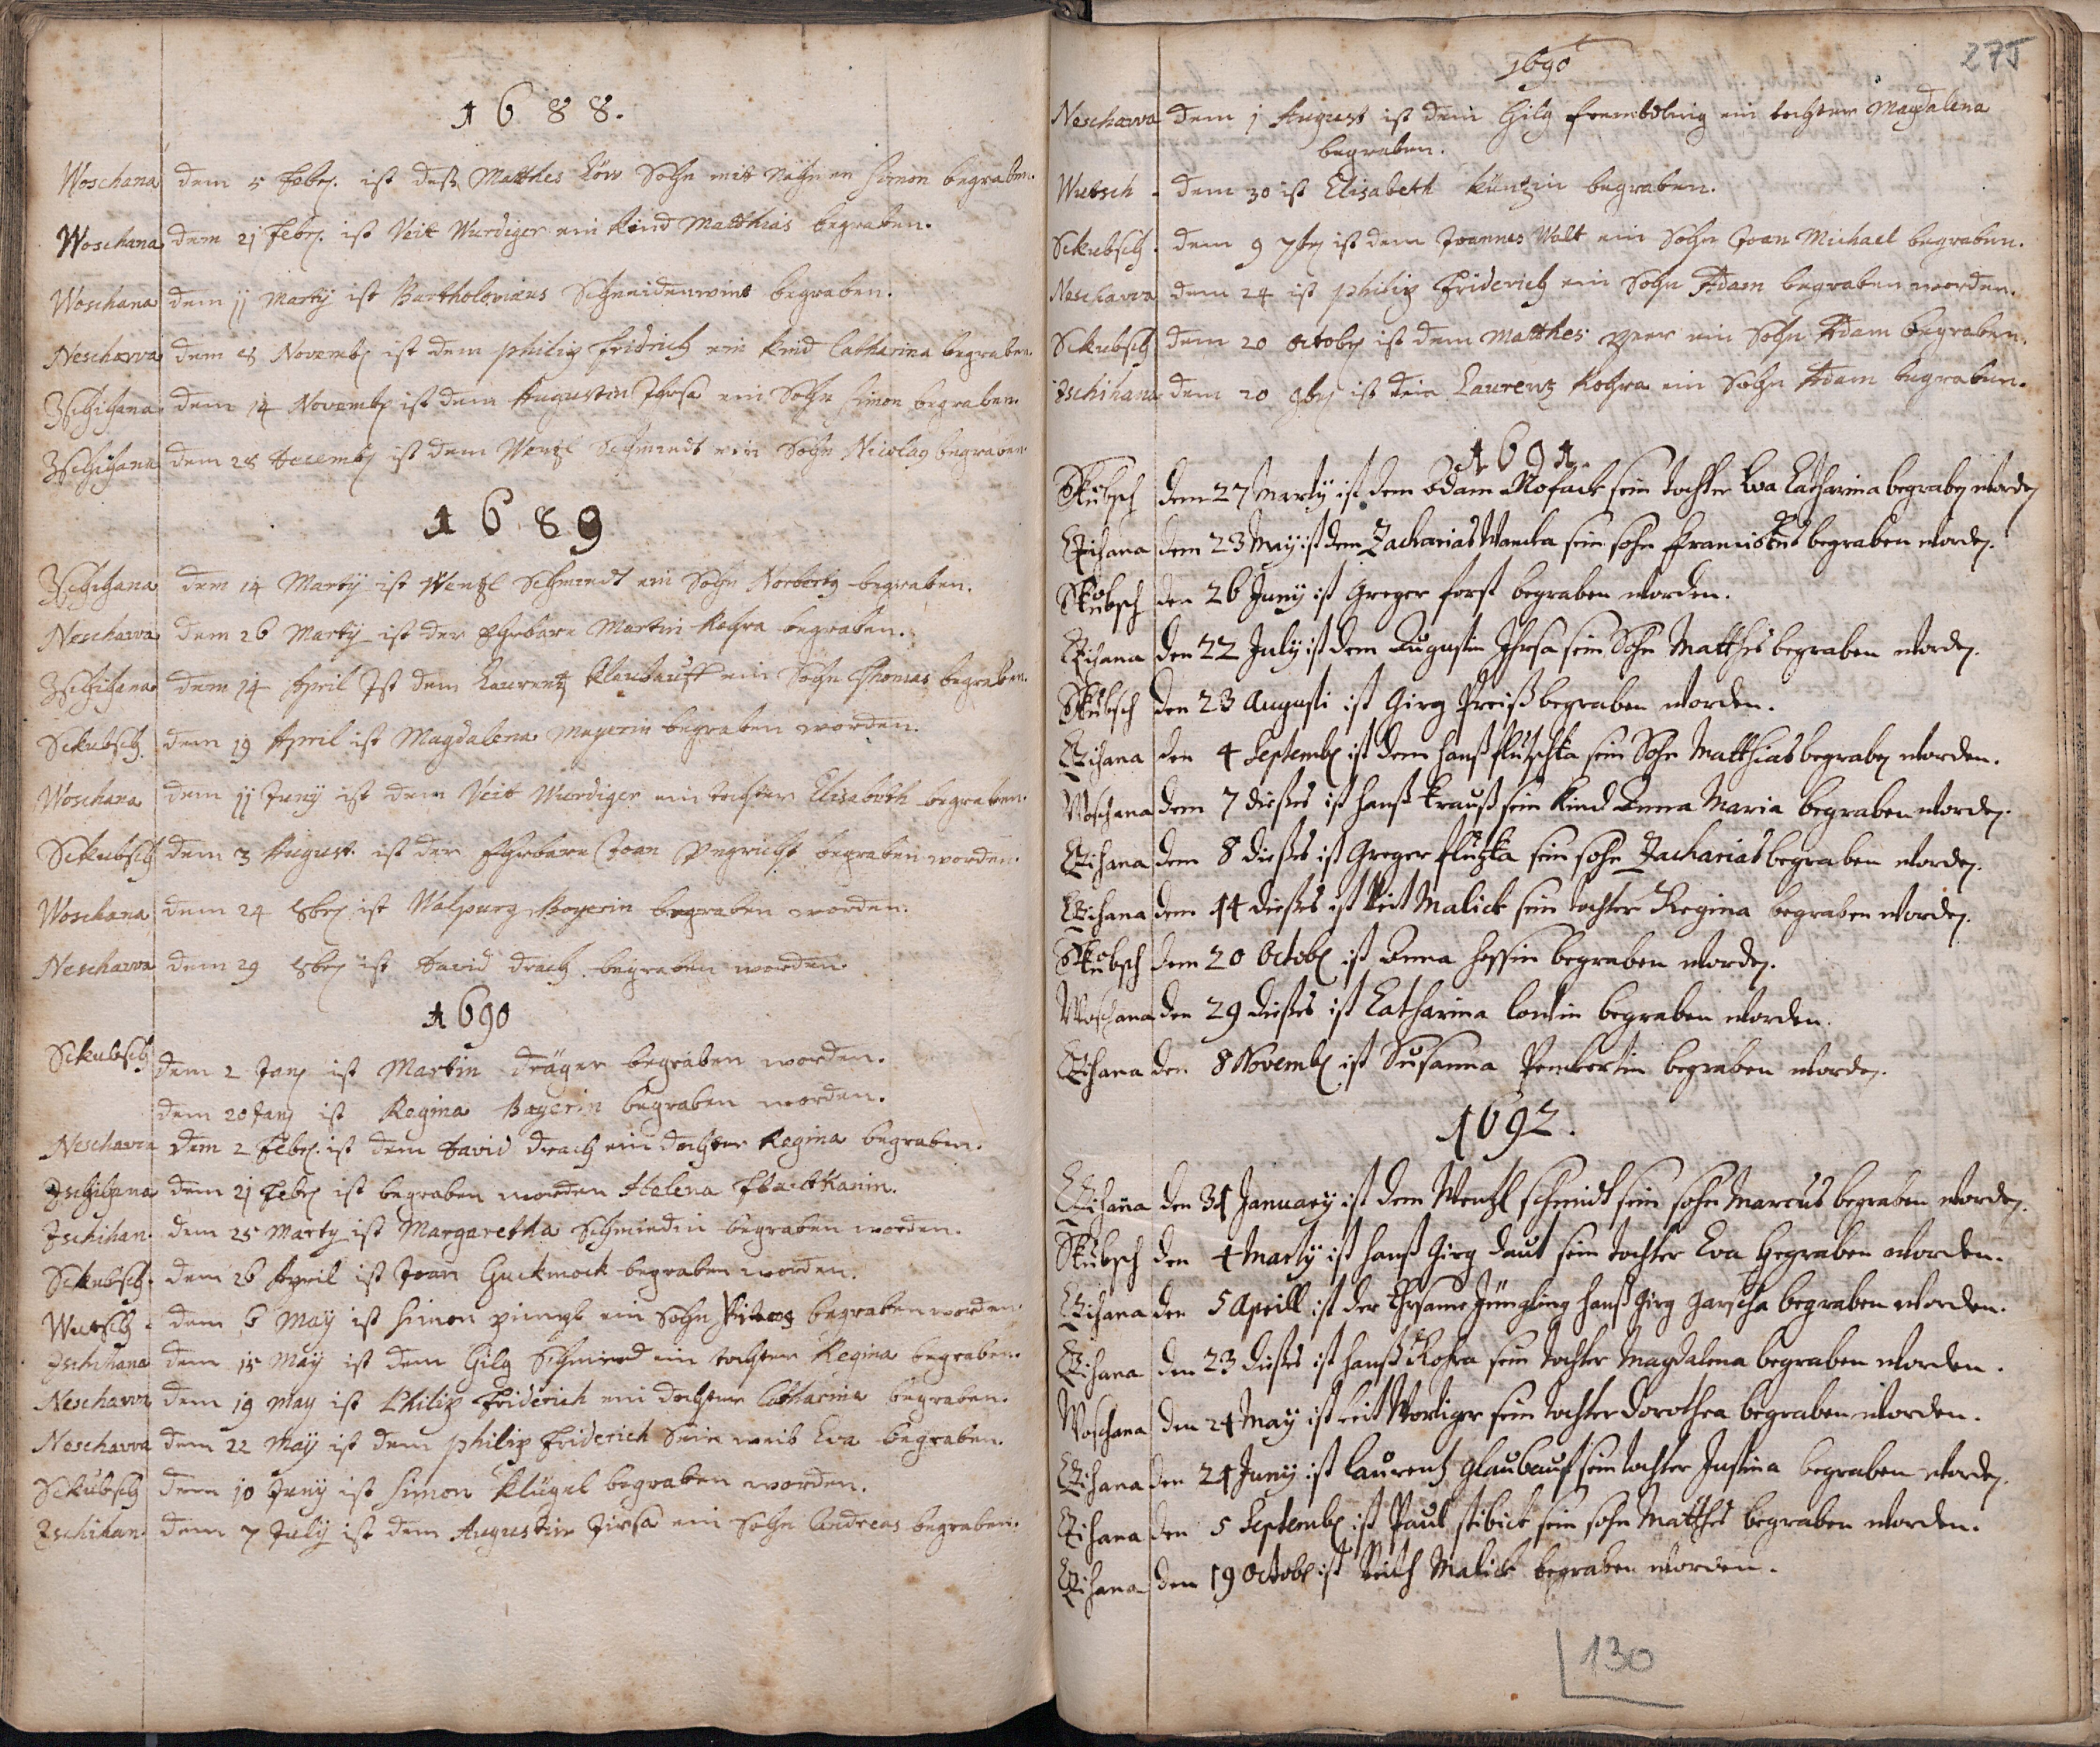 1688.
Woschana dem 5 Febr. ist deß Matthes Löw Sohn mit Nahmen Simon begraben.
Woschana dem 21 Febr. ist Veit Wurdiger ein Kind Matthias begraben.
Woschana dem 11 Marty ist Bartholomäus Schneidenwind begraben.
Neschawa dem 8 Novemb ist dem philip fridrich ein Kind Catharina begraben.
Zschihana dem 14 Novemb ist dem Augustin Jhrsa ein Sohn Simon begraben.
Zschihana dem 28 Decemb ist dem Wenzl Schmiedt ein Sohn Nicolaÿ begraben
1689
Zschihana dem 14 Marty ist Wenzl Schmiedt ein Sohn Norbertg begraben.
Neschawa dem 26 Marty ist der Ehrbare Martin Kohra begraben.
Zschihana dem 14 April Ist dem Laurentz Klaubauff ein Sohn Thomas begraben.
Sckubsch dem 19 April ist Magdalena Mayerin begraben worden.
Woschana dem 11 Juny ist dem Veit Wurdiger ein tochter Elisabeth begraben.
Sckubsch dem 3 August. ist der Ehrbare Joan begraben worden.
Woschana dem 24 8br ist Walpurg Bayerin begraben worden.
Neschawa dem 29 8br ist David Drach begraben worden.
1690
Sckubsch dem 2 Jan ist Martin Dräger begraben worden.
dem 20 Jan ist Regina Bayerin begraben worden.
Neschawa dem 2 Febr. ist dem David Drach ein dochter Regina begraben.
Zschihana dem 21 Febr ist begraben worden Helena
Zschihan. dem 25 Marty ist Margaretha Schmiedin begraben worden.
Sckubsch. dem 26 April ist Joan Guckmock begraben worden.
Wubsch - dem 6 May ist Simon ein Sohn begraben worden.
Zschihana dem 15 May ist dem Gilg Schmied ein tochter Regina begraben.
Neschawa dem 19 May ist Philip Friderich ein dochter Catharina begraben.
Neschawa dem 22 May ist dem philip Friderich Sein weib Eva begraben.
Sckubsch dem 10 Juny ist Simon Klügel begraben worden.
Zschihan. dem 7 July ist dem Augustin Jirsa ein Sohn Andreas begraben.
275
1690
Neschawa dem 1 August ist dem Gilg frembdling ein tochter Magdalena
begraben.
Wubsch - dem 30 ist Elisabeth Küntzin begraben.
Sckubsch. dem 9 7br ist dem Joannes Walt ein Sohn Joan Michael begraben.
Neschawa dem 24 ist philip Friderich ein Sohn Adam begraben worden.
Sckubsch dem 20 Octob ist dem Matthes ein Sohn Adam begraben.
Zschihana dem 20 9br ist dem Laurentz Kohra ein Sohn Adam begraben.
1691.
Skubsch dem 27 Marty ist dem Adam Nosack sein tochter Eva Catharina begraben worden
Czihana dem 23 May ist dem Zacharias Wancka sein sohn Franciskus begraben worden.
Skubsch den 26 Juny ist Greger forst begraben worden.
Czihana den 22 July ist dem Augustin Jhrsa sein Sohn Matthes begraben worden.
Skubsch den 23 Augusti ist Girg Preiß begraben worden.
Czihana den 4 Septemb ist dem hanß flutschka sein Sohn Matthias begraben worden.
Woschana dem 7 dießes ist hanß Krauß sein Kind Anna Maria begraben worden.
Czihana dem 8 dießes ist Greger flutzka sein sohn Zacharias begraben worden.
Czihana dem 14 dießes ist Veit Malick sein tochter Regina begraben worden.
Skubsch dem 20 Octob ist Anna hessin begraben worden.
Woschana den 29 dießes ist Catharina lowin begraben worden.
Czihana den 8 Novemb ist Susanna Penkertin begraben worden.
1692.
Czihana den 31 January ist dem Wentzl schmidt sein sohn Marcus begraben worden.
Skubsch den 4 Marty ist hanß Girg daut sein tochter Eva begraben worden.
Czihana den 5 Aprill ist der Ehrsame Jüngling hanß Girg garscha begraben worden.
Czihana den 23 dießes ist hanß Kohra sein tochter Magdalena begraben worden.
Woschana den 24 May ist veit Wordiger sein tochter dorothea begraben worden.
Czihana den 24 Juny ist laurentz glaubauf sein tochter Justina begraben worden.
Czihana den 5 Septemb ist Paul stibick sein sohn Matthes begraben worden.
Czihana den 19 Octob ist Veith Malick begraben worden.
130